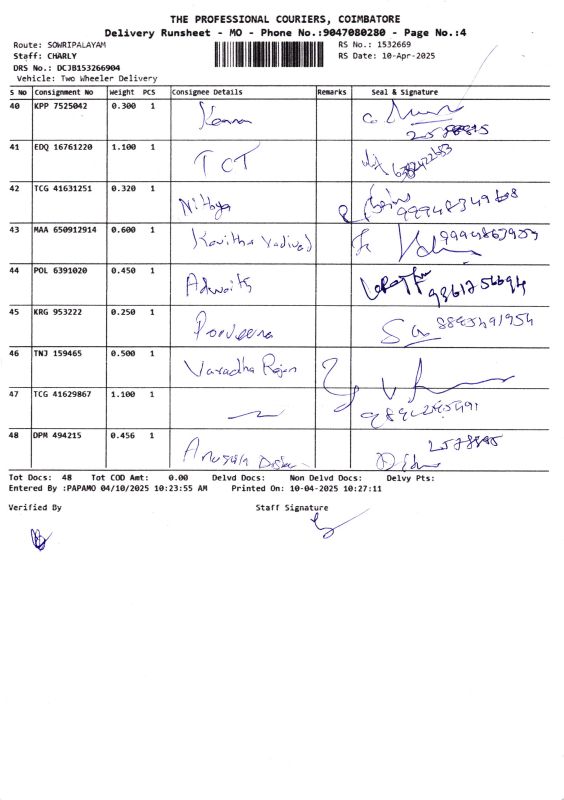 THE PROFESSIONAL COURIERS, COIMBATORE
Delivery Runsheet - MO - Phone No.:9047080280 - Page No.:4
Route: SOWRIPALAYAM RS No.: 1532669
Staff: CHARLY RS Date: 10-Apr-2025
DRS No.: DCJB153266904
Vehicle: Two Wheeler Delivery
S No Consignment No Weight PCS Consignee Details Remarks Seal & Signature
40 KPP 7525042 0.300 1
41 EDQ 16761220 1.100 1 TCT
42 TCG 41631251 0.320 1 Nithya
43 MAA 650912914 0.600 1 Kavitha Vadivel
44 POL 6391020 0.450 1 Adwaith
45 KRG 953222 0.250 1 Porveena
46 TNJ 159465 0.500 1 Varadha Rajan
47 TCG 41629867 1.100 1
48 DPM 494215 0.456 1
Tot Docs: 48 Tot COD Amt: 0.00 Delvd Docs: Non Delvd Docs: Delvy Pts:
Entered By :PAPAMO 04/10/2025 10:23:55 AM Printed On: 10-04-2025 10:27:11
Verified By Staff Signature